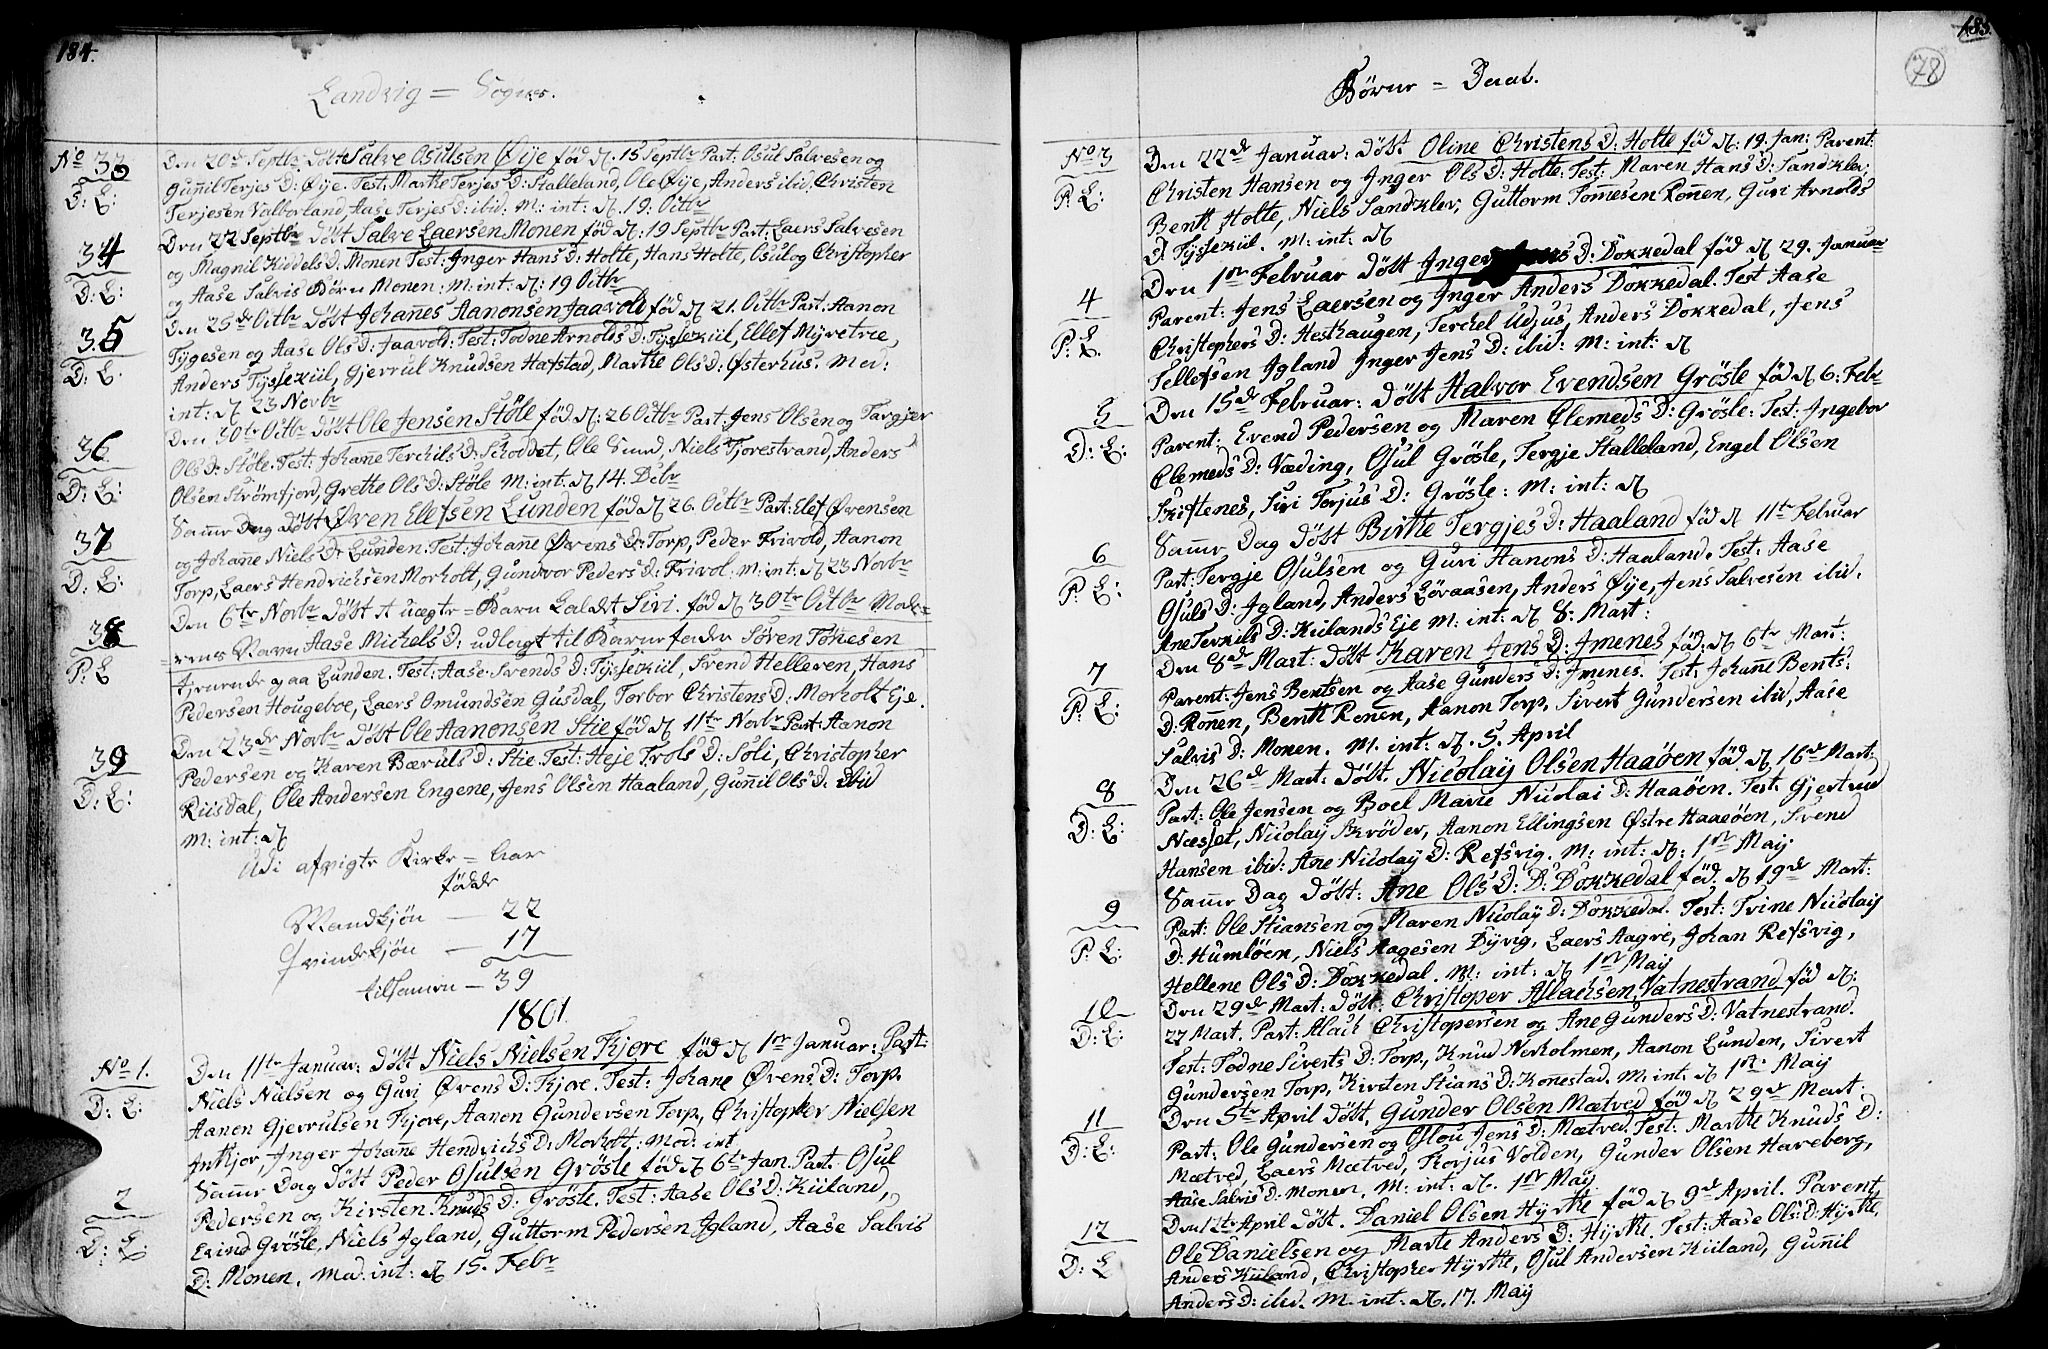 184.
Landvig = Sogns.
No 33 Den 20de Septbr døbt Salve Osulsen Øije fød d. 15 Septbr Part: Osul Salvesen og
D: E: Guñil Terjes D: Øije. Test: Marthe Terjes D: Stalleland, Ole Øije, Anders ibid. Christen
Terjesen Valborland, Aase Terjes D: ibid. M: int: d. 19: Octbr
34 Den 22 Septbr døbt Salve Laersen Monen fød d: 19 Septbr Part: Laers Salvesen
D: E: og Magnil Kiddels D: Monen Test: Inger Hans D: Holte, Hans Holte, Osul og Christopher
og Aase Salvis Børn Monen: M: int: d: 19 Octbr
35 Den 25de Octbr døbt Johañes Aanonsen Jaavold fød d. 21. Octbr Part: Aanon
D: E: Tygesen og Aase Ols D: Jaavold: Test: Todne Arnolds D: Tyssekiil, Ellef Myretræ,
Anders Tyssekiil, Gjerrul Knudsen Hafstad, Marthe Ols D: Østerhus. M ed:
int: d. 23 Novbr
36 Den 30te Octbr døbt Ole Jensen Støle fød d: 26 Octbr Part: Jens Olsen og Targjer
D: E: Ols D: Støle. Test: Johañe Terchils D: Skoddet, Ole Sund, Niels Tjorestrand, Anders
Olsen Strømfjord, Grethe Ols D: Støle M: int: d. 14. Debr
37 Samme Dag døbt Øven Elefsen Lunden fød d. 26. Octbr Part: Elef Øvensen
D: E: og Johañe Niels D: Lunden. Test: Johañe Øvens D: Torp, Peder Frivold, Aanon
Torp, Laers Hendrichsen Morholt, Gundvor Peders D: Frivol: M: int: d. 23 Novbr
38 Den 6te Novbr døbt et uægte = Barn kaldet Siri. fød d. 30te Octbr Mode=
P: E =rens Navn Aase Michels D: udlagt til Barnefader Søren Tønesen
tjenende paa Lunden. Test: Aase Svends D: Tyssekiil, Svend Helleren, Hans
Pedersen Hougeboe, Laers Omundsen Gusdal, Torbor Christens D: Morholt Eje.
39 Den 23de Novbr døbt Ole Aanonsen Stie fød d. 11te Novbr Part: Aanon
D: E: Pedersen og Karen Bæruls D: Stie. Test: Heje Trols D: Soli, Christopher
Riisdal, Ole Andersen Engene, Jens Olsen Haaland, Guñil Ols D: Ibid
M: int: d.
Udi afvigte Kirke = Aar
fødde
Mandkjøn — 22
Qvindekjøn — 17
tilsamen — 39
1801
No 1. Den 11te Januar: døbt Niels Nielsen Kjore fød d. 1ste Januar: Part:
D: E: Niels Nielsen og Guri Øvens D: Kjore. Test: Johane Øvens D: Torp.
Aanon Gjerrulsen Kjore, Aanon Gundersen Torp, Christopher Nielsen
Inkjor, Inger Johañe Hendrichs D: Morholt: Mod: int
2 Samme Dag døbt Peder Osulsen Grøsle fød d. 6te Jan. Part: Osul
D: E: Pedersen og Kirsten Knuds D: Grøsle. Test: Aase Ols D: Kiiland,
Evind Grøsle, Niels Igland, Guttorm Pedersen Igland, Aase Salvis
D: Monen. Mod. int: d. 15. Febr
185.
78
Børne = Daab.
No 3 Den 22de Januar: døbt Oline Christens D: Holte fød d. 19. Jan: Parent:
P: E: Christen Hansen og Inger Ols D: Holte: Test: Maren Hans D: Sandklev,
Benth Holte, Niels Sandklev, Guttorm Tomesen Roñen, Guri Arnolds
D: Tyssekiil. M: int: d.
4 Den 1ste Februar døbt Inger Jens D: Dokkedal fød d. 29. Januar
P: E. Parent: Jens Laersen og Inger Anders Dokkedal. Test Aase
Christophers D: Heshaugen, Terchel Udjus, Anders Dokkedal, Jens
Tellefsen Igland Inger Jens D: ibid: M: int: d.
5 Den 15de Februar: døbt Halvor Evendsen Grøsle fød d. 6: Febr
D: E: Parent: Evend Pedersen og Maren Clemeds D: Grøsle: Test: Ingebor
Clemeds D: Væding, Osul Grøsle, Tergje Stalleland, Engel Olsen
Skistenes, Siri Torjus D: Grøsle: M: int: d.
6 Samme Dag døbt Birthe Tergjes D: Haaland fød d. 11te Februar
P: E: Part: Tergje Osulsen og Guri Hanons D: Haaland. Test: Aase
Osuls D: Igland, Anders Løvaasen, Anders Øije, Jens Salvesen ibid.
Ane Terkils D: Kiilands Eje M: int: d. 8: Mart:
7 Den 8de Mart: døbt Karen Jens D: Imenes fød: d. 6te Mart:
P: E: Parent: Jens Bentsen og Aase Gunders D: Imenes. Test: Johañe Bents:
D: Roñen, Benth Roñen, Aanon Torp, Sivert Gundersen ibid, Aase
Salvis D: Monen. M. int: d. 5. April
8 Den 26de Mart: døbt. Nicolaÿ Olsen Haaöen fød d. 16de Mart:
D: E: Part: Ole Jensen og Boel Marie Nicolai D: Haaöen. Test: Gjertrud
Næsset, Nicolay Skrøder, Aanon Ellingsen Østre Haaeöen, Svend
Hansen ibid: Ane Nicolaÿ D: Refsvig. M: int: d: 1ste Maij.
9 Samme Dag døbt: Ane Ols D: D: Dokkedal fød. d. 19de Mart:
P: E: Part: Ole Stiansen og Maren Nicolaÿ D: Dokkedal. Test: Trine Nicolaij
D: Humlöen, Niels Aagesen Dijvig, Laers Aagre, Johan Refsvig,
Hellene Ols D: Dokkedal. M: int: d. 1ste Maij
10 Den 29de Mart: døbt: Christoper Aslachsen Vatnestrand fød d:
D: E: 27 Mart. Part: Aslach Christopersen og Ane Gunders D: Vatnestrand.
Test: Todne Siverts D: Torp, Knud Norholmen, Aanon Lunden, Sivert
Gundersen Torp, Kirsten Stians D: Konestad. M: int: d. 1ste Maij
11 Den 5te April døbt, Gunder Olsen Mætved fød d. 29de Mart:
D: E: Part: Ole Gundersen og Oslou Jens D: Mætved. Test: Marthe Knuds D:
Mætved, Laers Mætved, Thorjus Volden, Gunder Olsen Hareberg,
Aase Salvis D: Monen. M: int: d. 1ste Maij.
12 Den 12te April døbt. Daniel Olsen Hyrthe fød d. 9de April. Parent
D: E Ole Danielsen og Marte Anders D: Hyrthe. Test: Aase Ols: D: Hÿrthe,
Anders Kiiland, Christopher Hyrthe, Osul Andersen Kiiland, Guñil
Anders D: ibid. M. int: d. 17. Maij